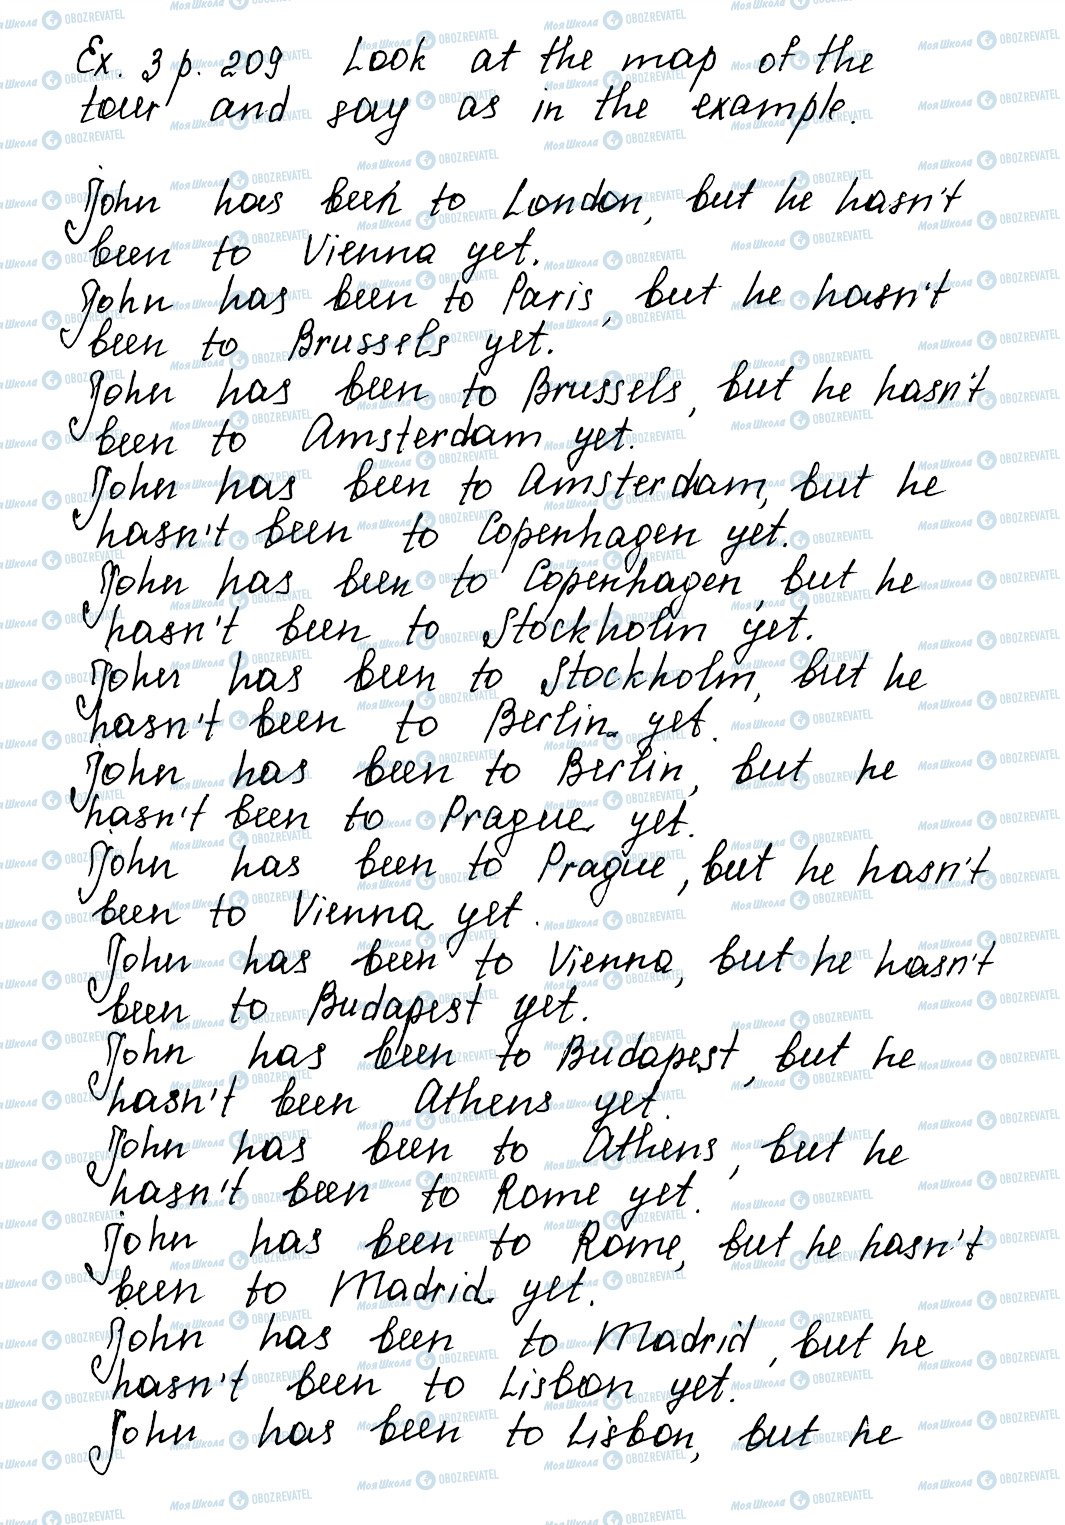 Ex. 3 p. 209 Look at the map of the
tour and say as in the example.
John has been to London, but he hasn't
been to Vienna yet.
John has been to Paris, but he hasn't
been to Brussels yet.
John has been to Brussels, but he hasn't
been to Amsterdam yet.
John has been to Amsterdam, but he
hasn't been to Copenhagen yet.
John has been to Copenhagen, but he
hasn't been to Stockholm yet.
John has been to Stockholm, but he
hasn't been to Berlin yet.
John has been to Berlin, but he
hasn't been to Prague yet.
John has been to Prague, but he hasn't
been to Vienna yet.
John has been to Vienna, but he hasn't
been to Budapest yet.
John has been to Budapest, but he
hasn't been Athens yet.
John has been to Athens, but he
hasn't been to Rome yet.
John has been to Rome, but he hasn't
been to Madrid yet.
John has been to Madrid, but he
hasn't been to Lisbon yet.
John has been to Lisbon, but he